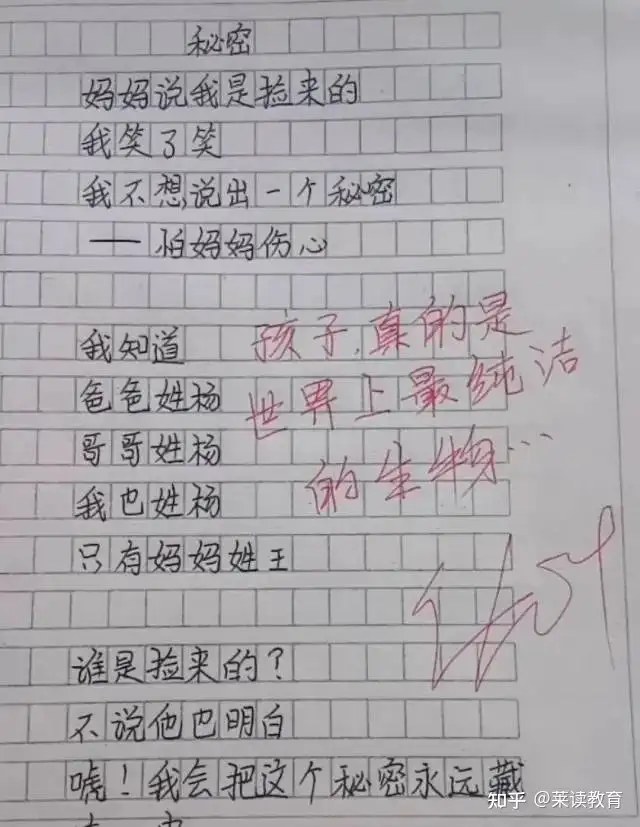 秘密
妈妈说我是捡来的
我笑了笑
我不想说出一个秘密
——怕妈妈伤心
我知道
爸爸姓杨
哥哥姓杨
我也姓杨
只有妈妈姓王
谁是捡来的？
不说他也明白
嘘！我会把这个秘密永远藏
孩子，真的是
世界上最纯洁
的生物…
知乎 @莱读教育